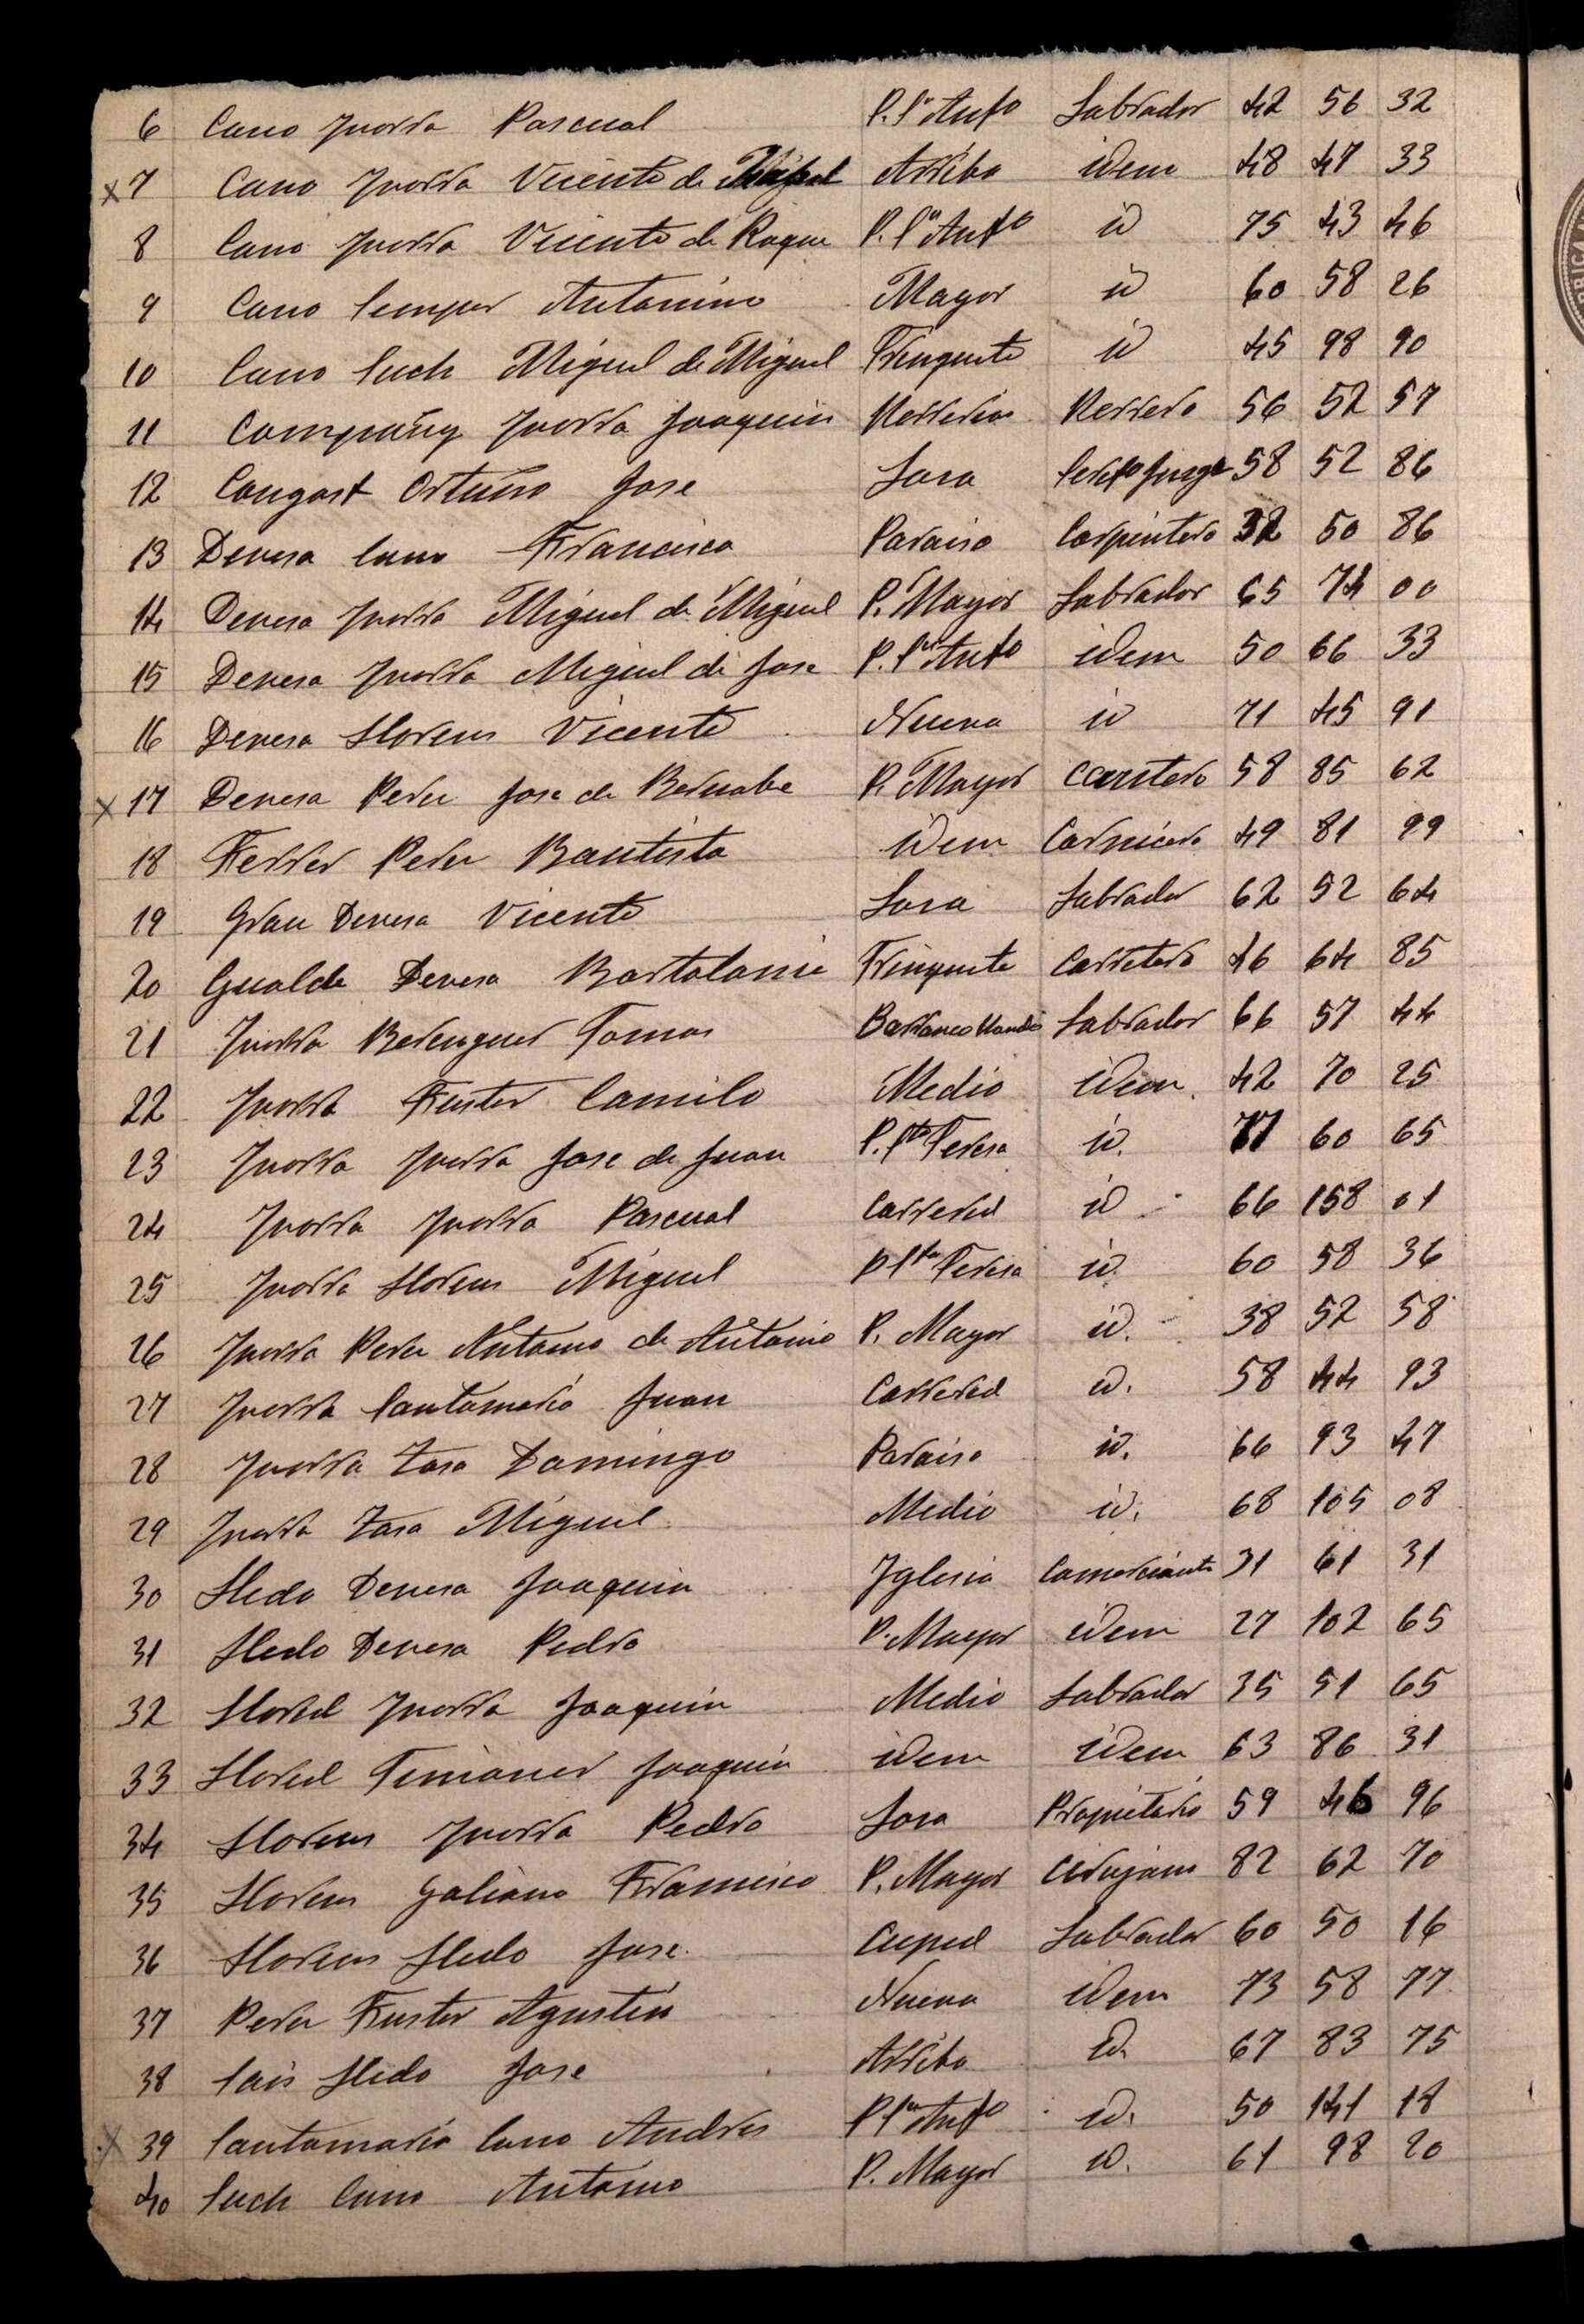 6 Cano Yvorra Pascual P. Sn Anto Labrador 42 56 32
x 7 Cano Yvorra Vicente de Arriba idem 48 47 33
8 Cano Yvorra Vicente de Roque P. Sn Anto id 75 43 46
9 Cano Semper Antonino Mayor id 60 58 26
10 Cano Such Miguel de Miguel Trinquete id 45 98 90
11 Compañy Yvorra Joaquin Herrerias Herrero 56 52 57
12 Congost Ortuño Jose Loza 58 52 86
13 Devesa Cano Francisco Paraiso Carpintero 32 50 86
14 Devesa Yvorra Miguel de Miguel P. Mayor Labrador 65 74 00
15 Devesa Yvorra Miguel de Jose P. Sn Anto idem 50 66 33
16 Devesa Llorens Vicente Nueva id 71 45 91
x 17 Devesa Perez Jose de Bernabe P. Mayor Cantero 58 85 62
18 Ferrer Perez Bautista idem Carnicero 49 81 99
19 Grau Devesa Vicente Loza Labrador 62 52 64
20 Gualde Devesa Bartolome Trinquete Carretero 46 64 85
21 Yvorra Berenguer Tomas Barranco Labrador 66 57 44
22 Yvorra Fuster Camilo Medio idem. 42 70 25
23 Yvorra Yvorra Jose de Juan P. Sta Teresa id. 77 60 65
24 Yvorra Yvorra Pascual Carrered id 66 158 01
25 Yvorra Llorens Miguel P Sta Teresa id. 60 58 36
26 Yvorra Perez Antonio de Antonio P. Mayor id. 38 52 58
27 Yvorra Santamaria Juan Carrered id. 58 44 93
28 Yvorra Zara Domingo Paraiso id. 66 93 47
29 Yvorra Zara Miguel Medio id. 68 105 08
30 Lledo Devesa Joaquin Yglesia Comerciante 31 61 31
31 Lledo Devesa Pedro P. Mayor idem 27 102 65
32 Llored Yvorra Joaquin Medio Labrador 35 51 65
33 Llored Timoner Joaquin idem idem 63 86 31
34 Llorens Yvorra Pedro Loza Propietario 59 46 96
35 Llorens Galiano Francisco P. Mayor Cirujano 82 62 70
36 Llorens Lledo Jose Labrador 60 50 16
37 Perez Fuster Agustin Nueva idem 73 58 77
38 Sais Lledo Jose Arriba id. 67 83 75
x 39 Santamaria Cano Andres P Sn Anto id. 50 141 18
40 Such Cano Antonio P. Mayor id. 61 98 20